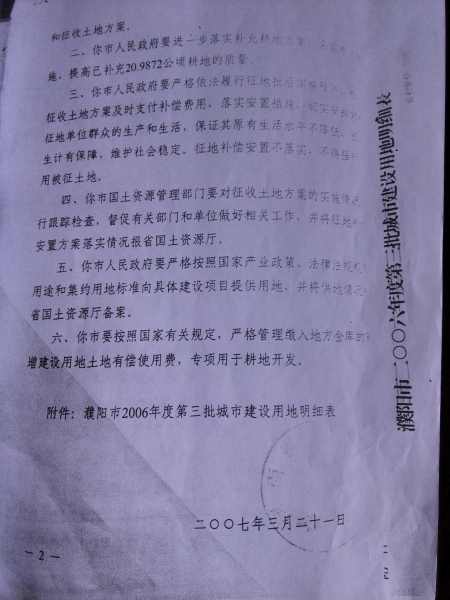 和征收土地方案。
二、你市人民政府要进一步落实补充耕地方案
施，提高已补充20.9872公顷耕地的质量。
三、你市人民政府要严格依法履行征地批后
征收土地方案及时支付补偿费用，落实安置措施
征地单位群众的生产和生活，保证其原有生活水平不降低
生计有保障，维护社会稳定。征地补偿安置不落实，不得
用被征土地。
四、你市国土资源管理部门要对征收土地方案的实施情
行跟踪检查，督促有关部门和单位做好相关工作，并将征地
安置方案落实情况报省国土资源厅。
五、你市人民政府要严格按照国家产业政策、法律法规
用途和集约用地标准向具体建设项目提供用地，并将供地情
省国土资源厅备案。
六、你市要按照国家有关规定，严格管理缴入地方金库的
增建设用地土地有偿使用费，专项用于耕地开发。
附件：濮阳市2006年度第三批城市建设用地明细表
二〇〇七年三月二十一日
－2－
濮阳市二〇〇六年度第三批城市建设用地明细表